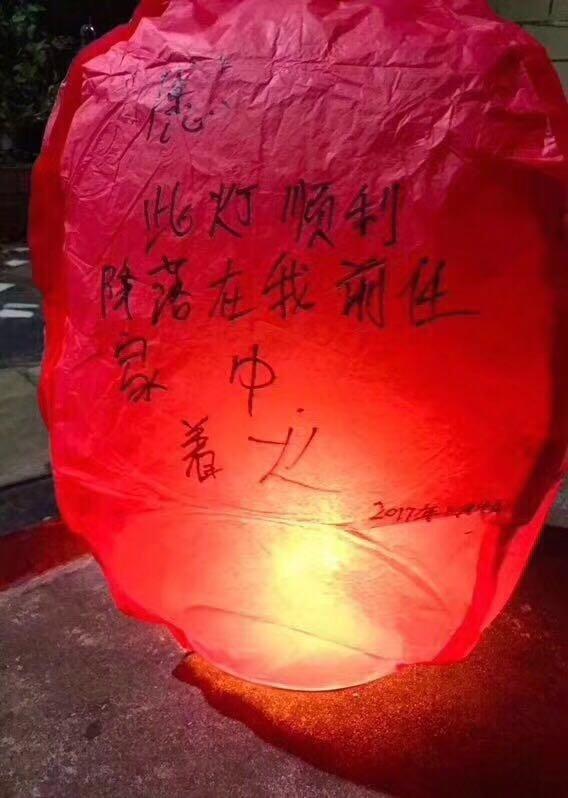 此灯顺利
降落在我前任
家中
着火
2017年